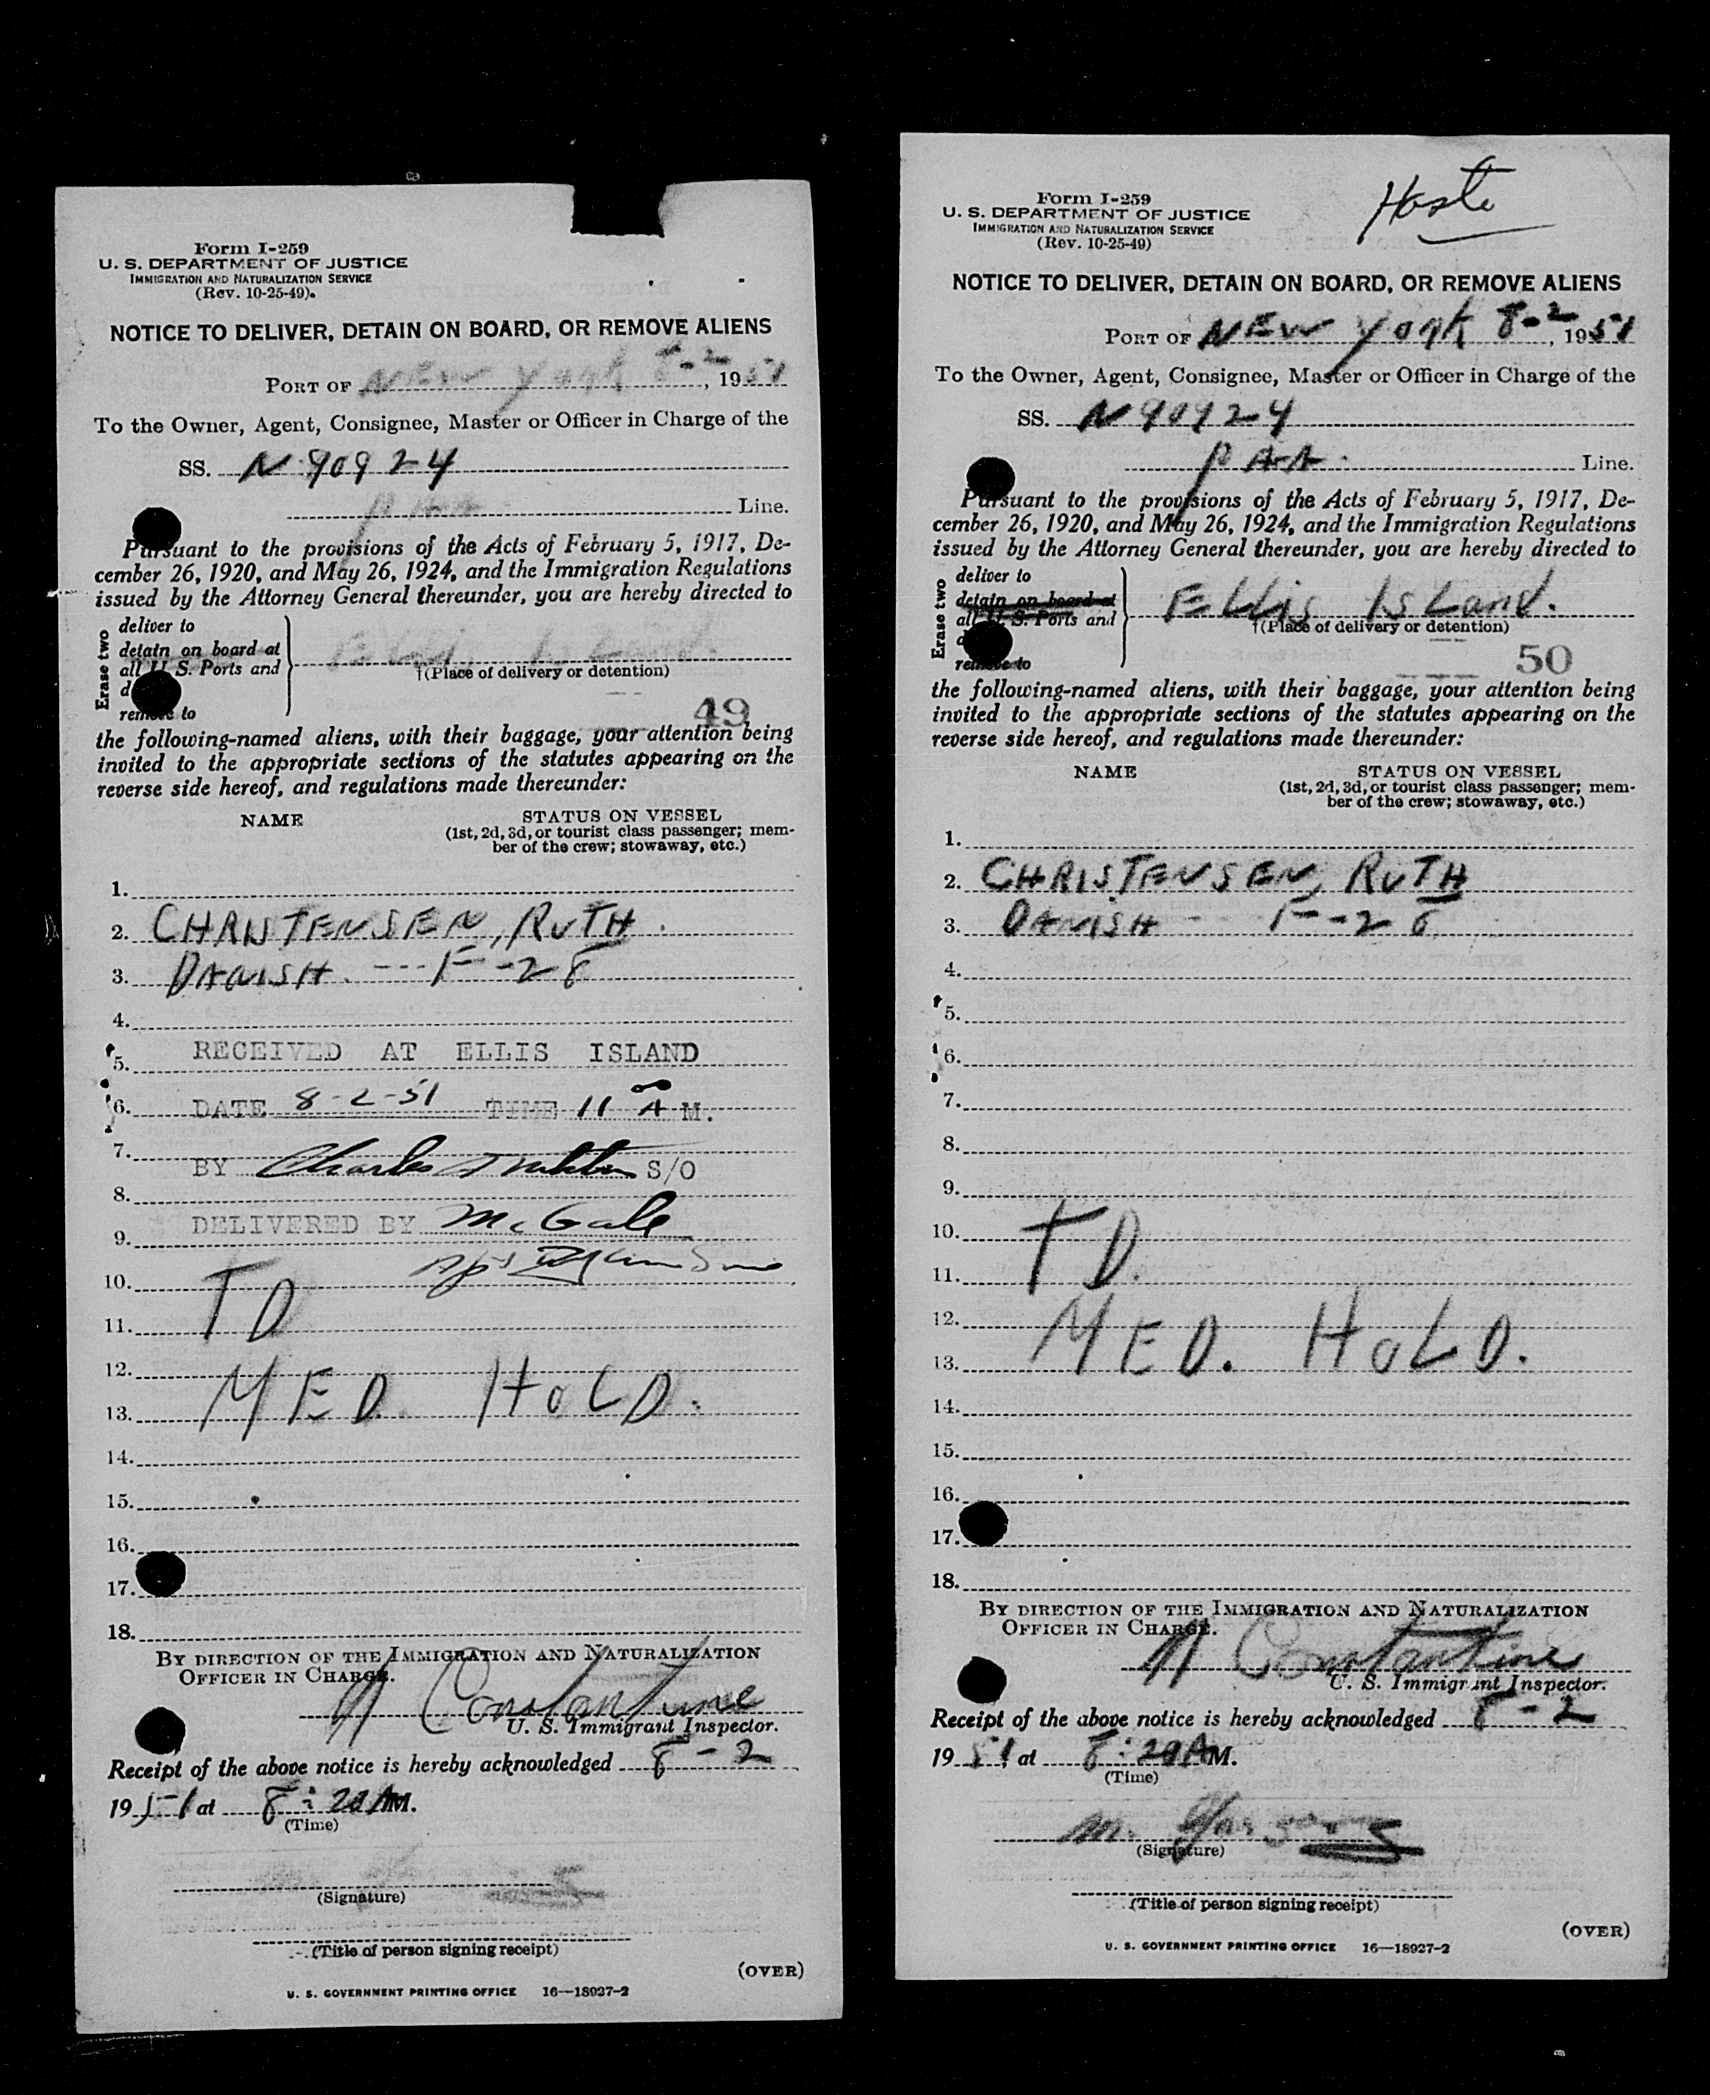 Form I-259
U. S. DEPARTMENT OF JUSTICE
IMMIGRATION AND NATURALIZATION SERVICE
(Rev. 10-25-49)
NOTICE TO DELIVER, DETAIN ON BOARD, OR REMOVE ALIENS
PORT OF NEW York 8-2, 1951
To the Owner, Agent, Consignee, Master or Officer in Charge of the
SS. N 90924
PAA Line.
Pursuant to the provisions of the Acts of February 5, 1917, De-
cember 26, 1920, and May 26, 1924, and the Immigration Regulations
issued by the Attorney General thereunder, you are hereby directed to
Erase two
deliver to
detain on board at
all U. S. Ports and
remove to
Ellis Island.
†(Place of delivery or detention)
49
the following-named aliens, with their baggage, your attention being
invited to the appropriate sections of the statutes appearing on the
reverse side hereof, and regulations made thereunder:
NAME STATUS ON VESSEL
(1st, 2d, 3d, or tourist class passenger; mem-
ber of the crew; stowaway, etc.)
1.
2. CHRISTENSEN, RUTH
3. DANISH --- F -28
4.
5. RECEIVED AT ELLIS ISLAND
6. DATE 8-2-51 TIME 11 00 A M.
7. BY Charles S/O
8.
9. DELIVERED BY McGale
10. TD
11.
12.
13. MED. HOLD.
14.
15.
16.
17.
18.
BY DIRECTION OF THE IMMIGRATION AND NATURALIZATION
OFFICER IN CHARGE.
N Constantine
U. S. Immigrant Inspector.
Receipt of the above notice is hereby acknowledged 8-2
1951 at 8:20 AM.
(Time)
(Signature)
(Title of person signing receipt)
(OVER)
U. S. GOVERNMENT PRINTING OFFICE 16—18927-2
Haste
Form I-259
U. S. DEPARTMENT OF JUSTICE
IMMIGRATION AND NATURALIZATION SERVICE
(Rev. 10-25-49)
NOTICE TO DELIVER, DETAIN ON BOARD, OR REMOVE ALIENS
PORT OF NEW York 8-2, 1951
To the Owner, Agent, Consignee, Master or Officer in Charge of the
SS. N 90924
PAA. Line.
Pursuant to the provisions of the Acts of February 5, 1917, De-
cember 26, 1920, and May 26, 1924, and the Immigration Regulations
issued by the Attorney General thereunder, you are hereby directed to
Erase two
deliver to
detain on board at
all U. S. Ports and
remove to
Ellis Island.
†(Place of delivery or detention)
50
the following-named aliens, with their baggage, your attention being
invited to the appropriate sections of the statutes appearing on the
reverse side hereof, and regulations made thereunder:
NAME STATUS ON VESSEL
(1st, 2d, 3d, or tourist class passenger; mem-
ber of the crew; stowaway, etc.)
1.
2. CHRISTENSEN, RUTH
3. DANISH - F - 28
4.
5.
6.
7.
8.
9.
10. TD.
11.
12.
13. MED. HOLD.
14.
15.
16.
17.
18.
BY DIRECTION OF THE IMMIGRATION AND NATURALIZATION
OFFICER IN CHARGE.
N Constantine
U. S. Immigrant Inspector.
Receipt of the above notice is hereby acknowledged 8-2
1951 at 8:20 AM.
(Time)
M.
(Signature)
(Title of person signing receipt)
(OVER)
U. S. GOVERNMENT PRINTING OFFICE 16—18927-2